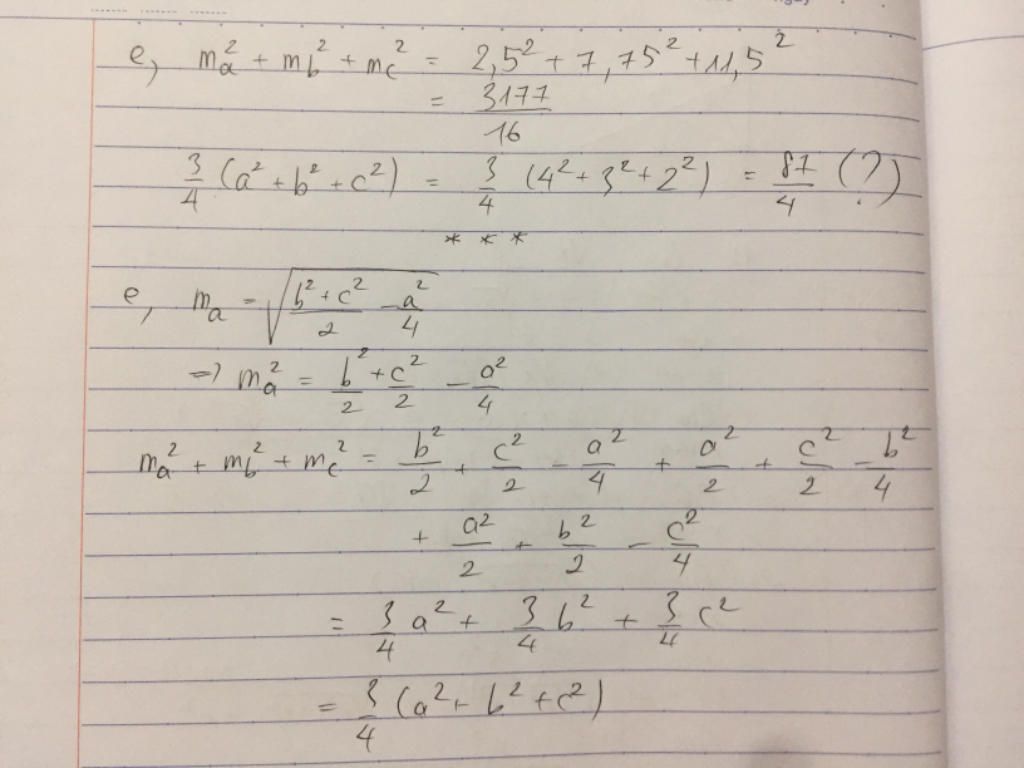 e, mₐ² + m_b² + m_c² = 2,5² + 7,75² + 11,5²
= 3177/16
3/4 (a² + b² + c²) = 3/4 (4² + 3² + 2²) = 87/4 (?)
* * *
e, mₐ = √((b² + c²)/2 - a²/4)
=> mₐ² = b²/2 + c²/2 - a²/4
mₐ² + m_b² + m_c² = b²/2 + c²/2 - a²/4 + a²/2 + c²/2 - b²/4
+ a²/2 + b²/2 - c²/4
= 3/4 a² + 3/4 b² + 3/4 c²
= 3/4 (a² + b² + c²)